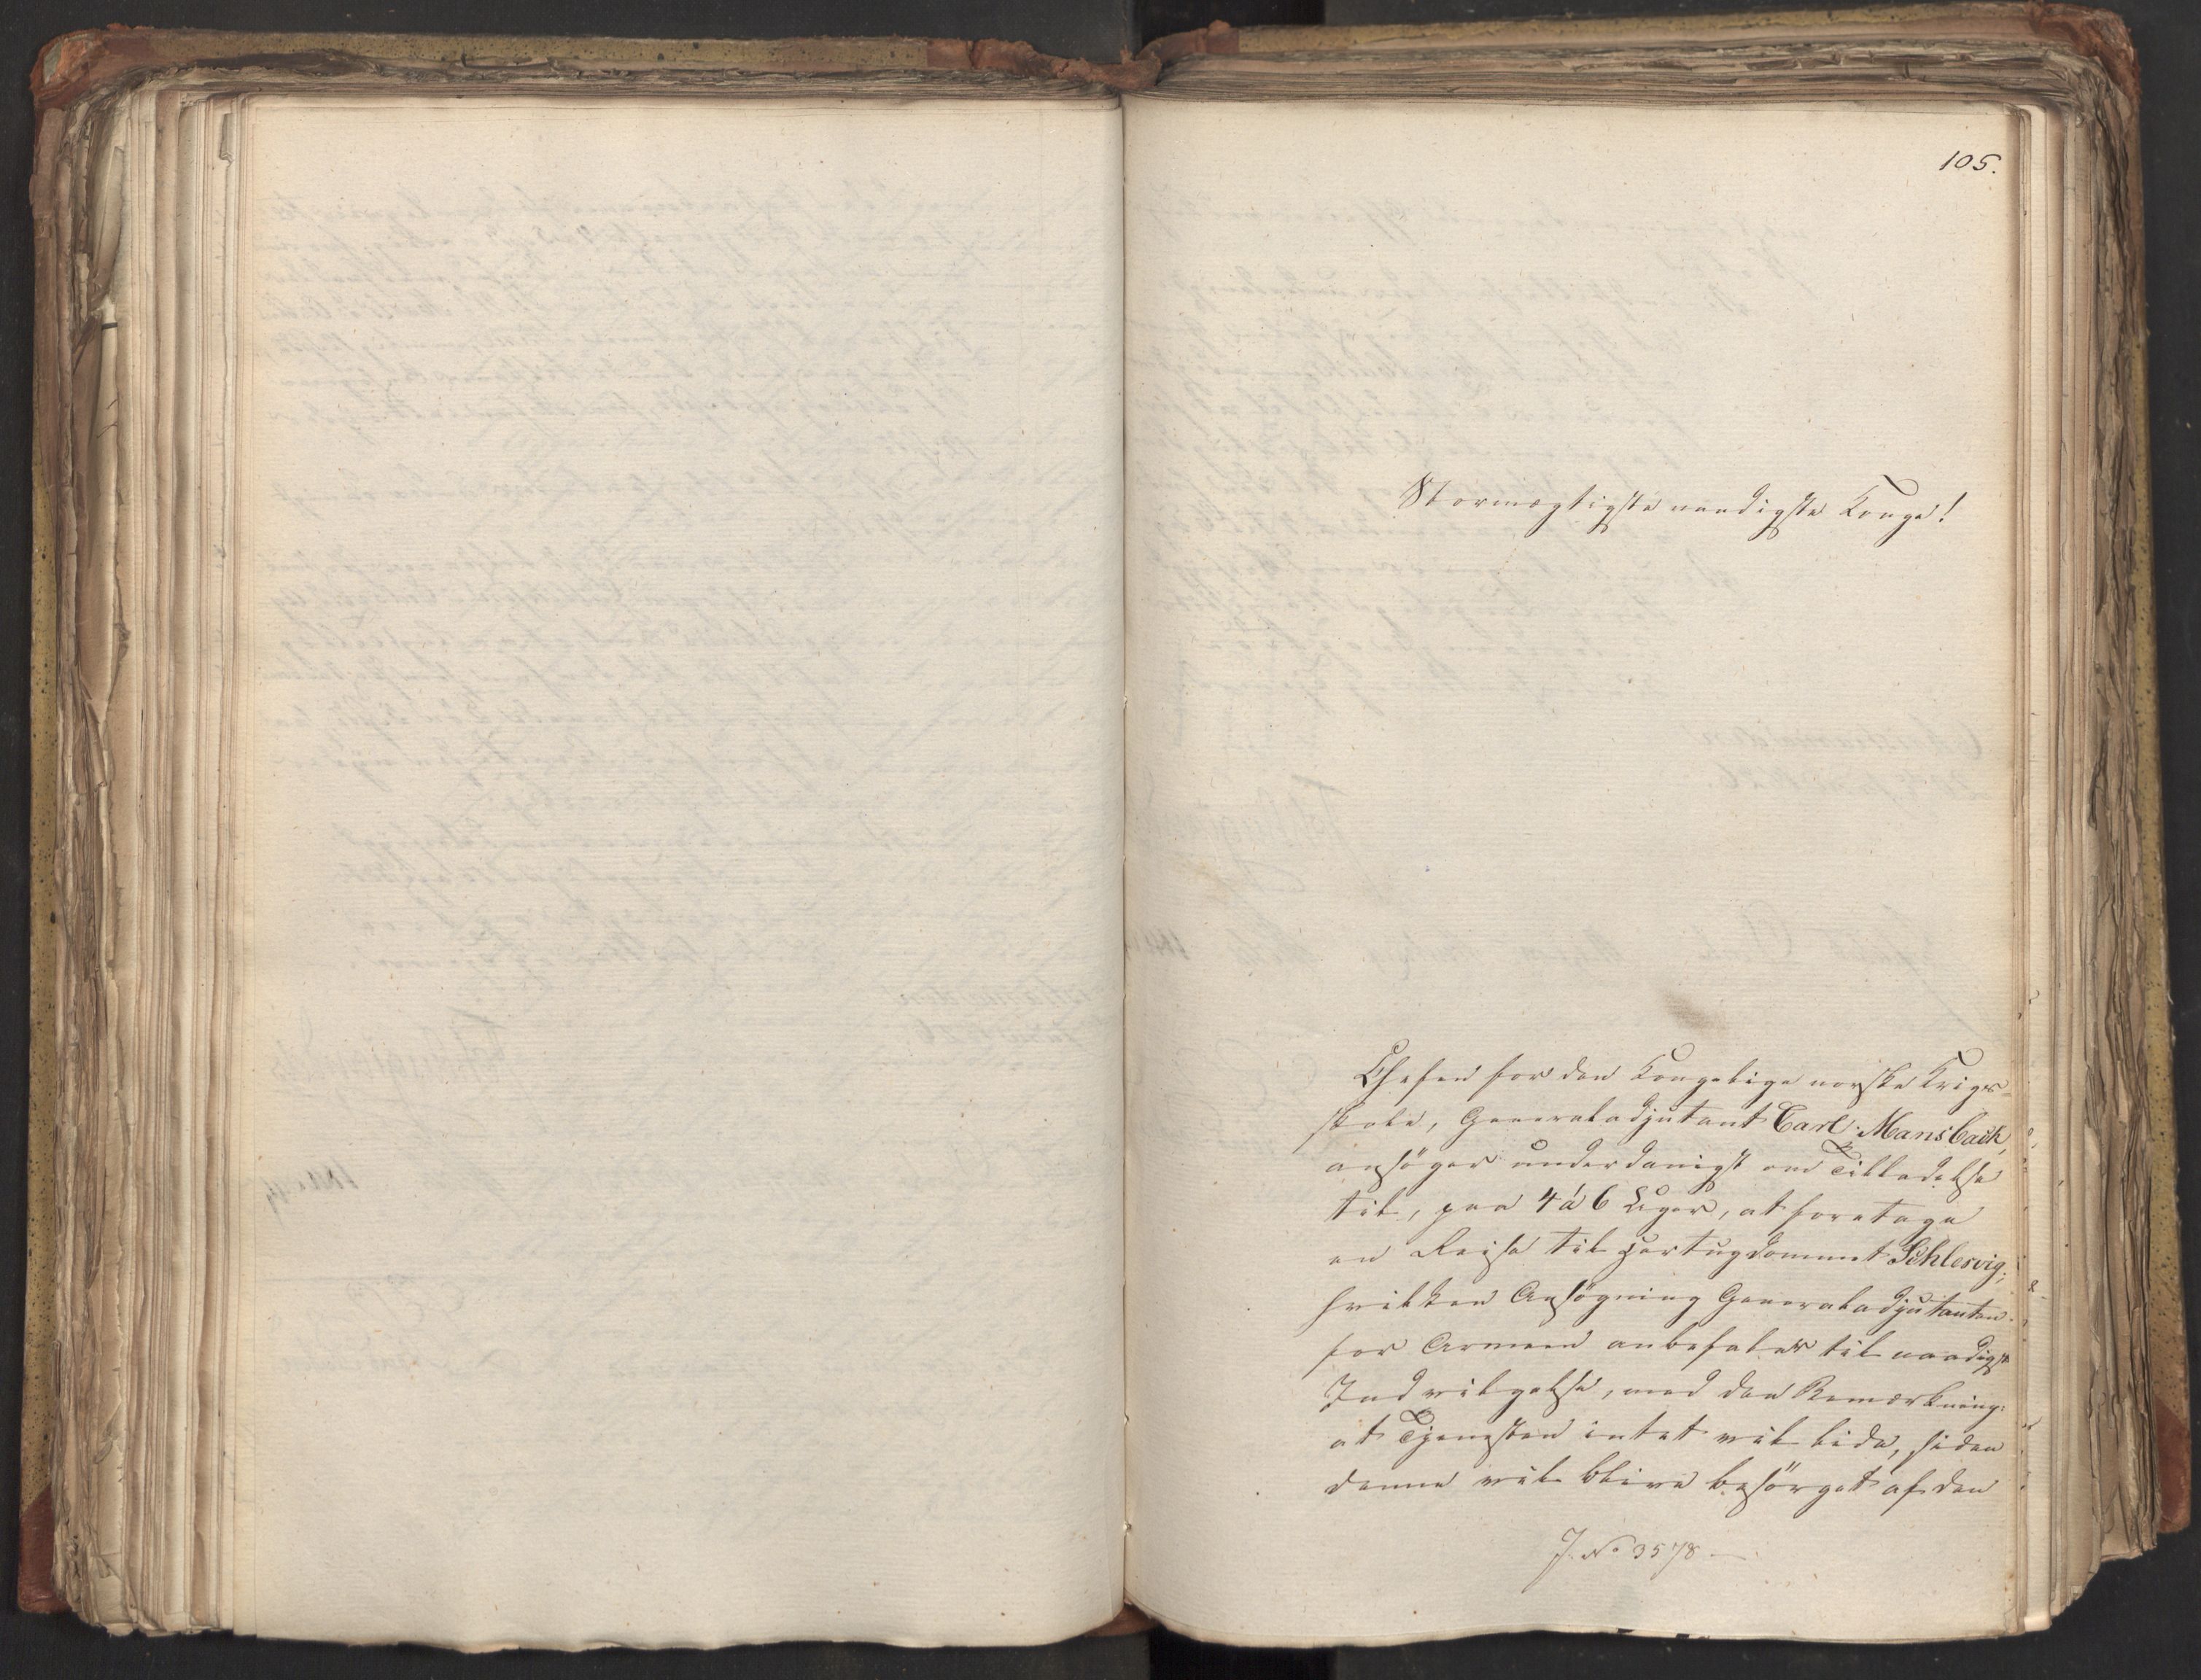 105.
Stormægtigste naadigste Konge!
Chefen for den Kongelige norske Krigs-
skole, Generaladjutant Carl Mansbach,
ansøger underdanigst om Tilladelse
til, paa 4 á 6 Uger, at foretage
en Reise til Hertugdømmet Schlesvig;
hvilken Ansøgning Generaladjutanten
for Armeen anbefaler til naadigst
Indvilgelse, med den Bemærkning:
at Tjenesten intet vil lide, siden
denne vil blive besørget af den
J. No 3578